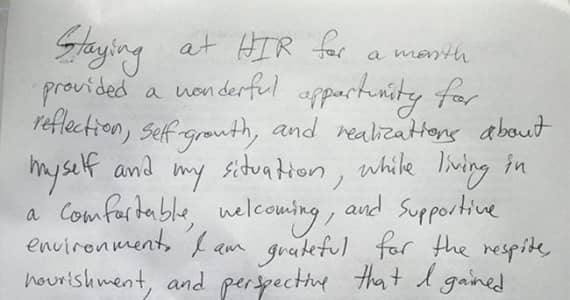 Staying at HIR for a month
provided a wonderful opportunity for
reflection, self-growth, and realizations about
myself and my situation, while living in
a comfortable, welcoming, and supportive
environment. I am grateful for the respite,
nourishment, and perspective that I gained